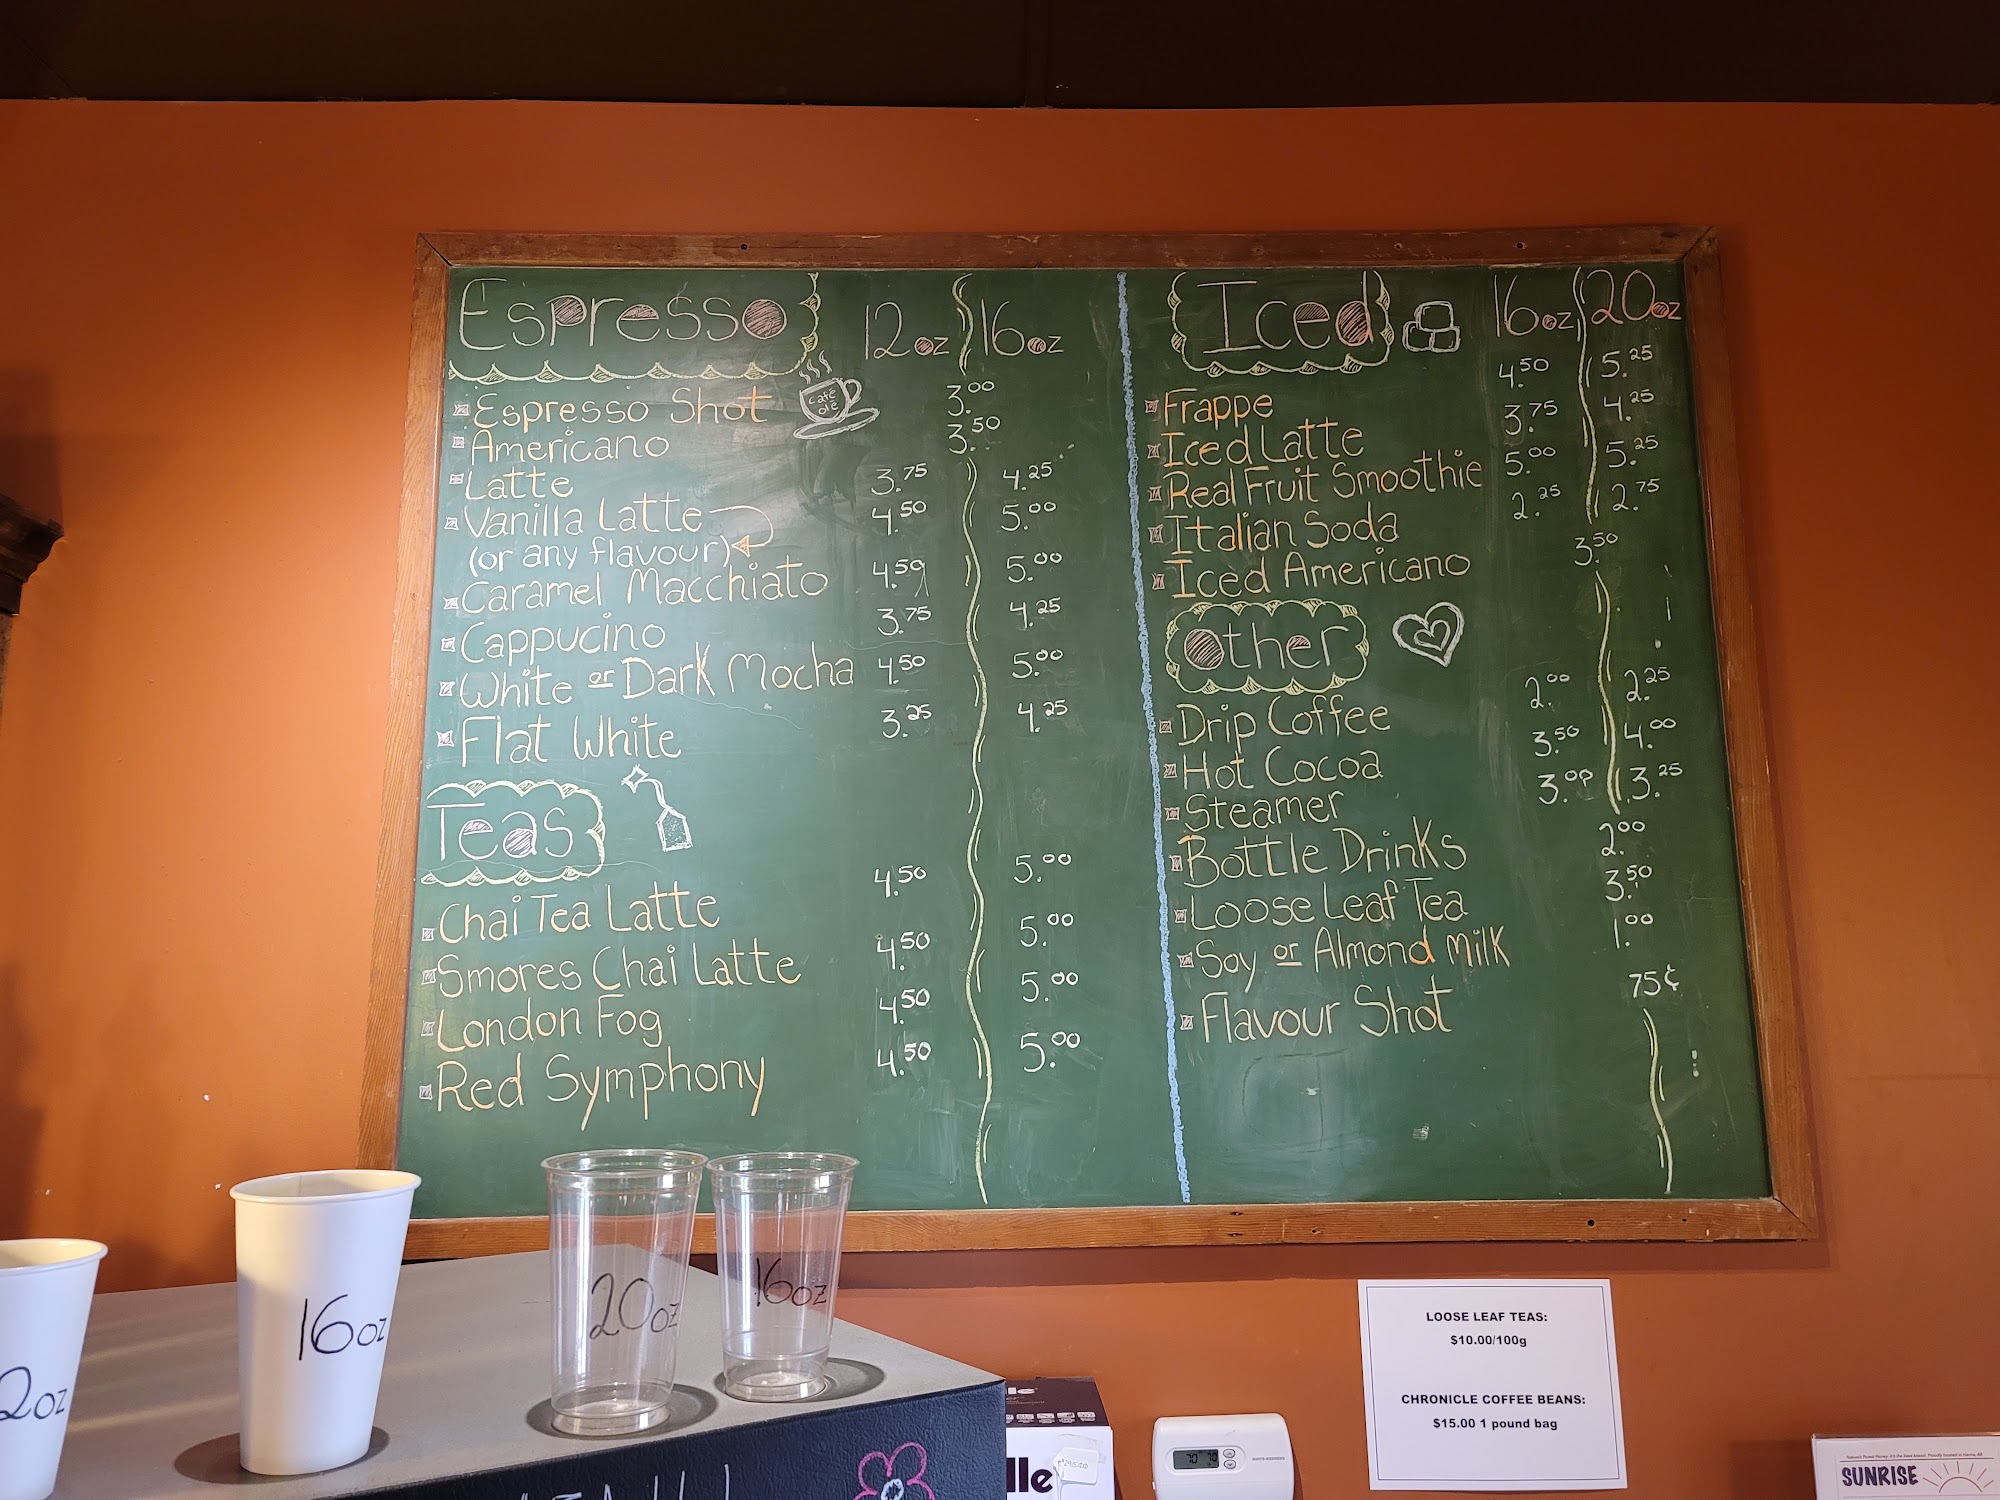 Espresso 12oz 16oz
café olé
Espresso Shot 3.00
Americano 3.50
Latte 3.75 4.25
Vanilla Latte 4.50 5.00
(or any flavour)
Caramel Macchiato 4.50 5.00
Cappucino 3.75 4.25
White or Dark Mocha 4.50 5.00
Flat White 3.25 4.25
Teas
Chai Tea Latte 4.50 5.00
Smores Chai Latte 4.50 5.00
London Fog 4.50 5.00
Red Symphony 4.50 5.00
Iced 16oz 20oz
Frappe 4.50 5.25
Iced Latte 3.75 4.25
Real Fruit Smoothie 5.00 5.25
Italian Soda 2.25 2.75
Iced Americano 3.50
Other
Drip Coffee 2.00 2.25
Hot Cocoa 3.50 4.00
Steamer 3.00 3.25
Bottle Drinks 2.00
Loose Leaf Tea 3.50
Soy or Almond Milk 1.00
Flavour Shot 75¢
2oz
16oz
20oz
16oz
LOOSE LEAF TEAS:
$10.00/100g
CHRONICLE COFFEE BEANS:
$15.00 1 pound bag
70 70
SUNRISE